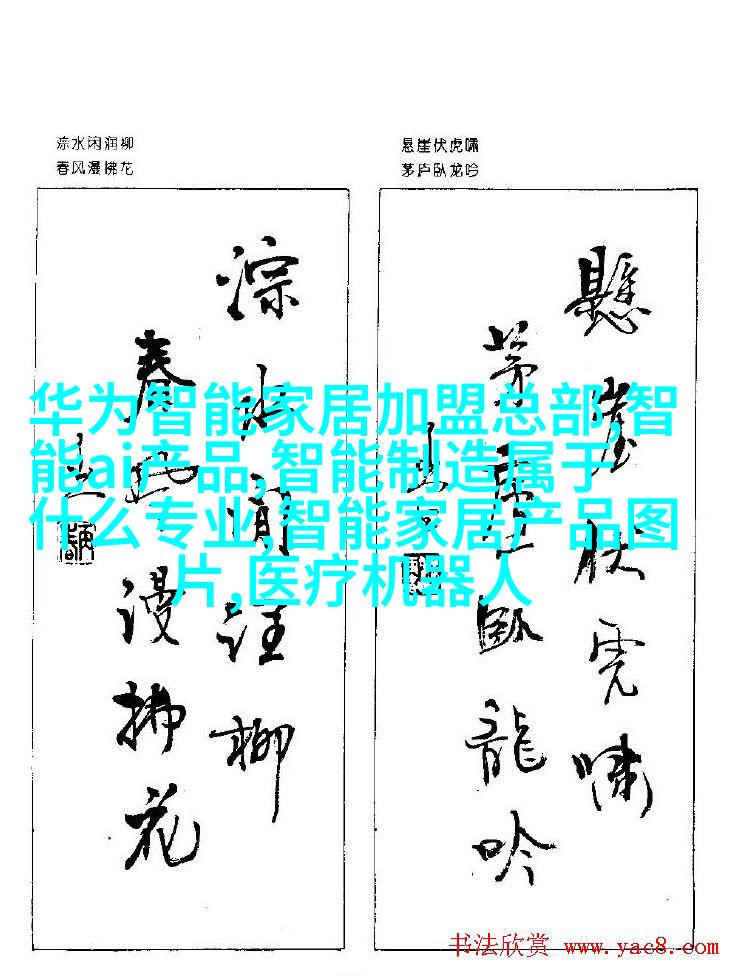 淙水闲润柳
春风漫拂花
悬崖伏虎啸
茅庐卧龙吟
淙水闲洼柳
春风漫拂花
懸崖伏虎啸
茅庐卧龍吟
华为智能家居加盟总部,智
能ai产品,智能制造属于
什么专业,智能家居产品图
片,医疗机器人
书法欣赏 www.yac8.com